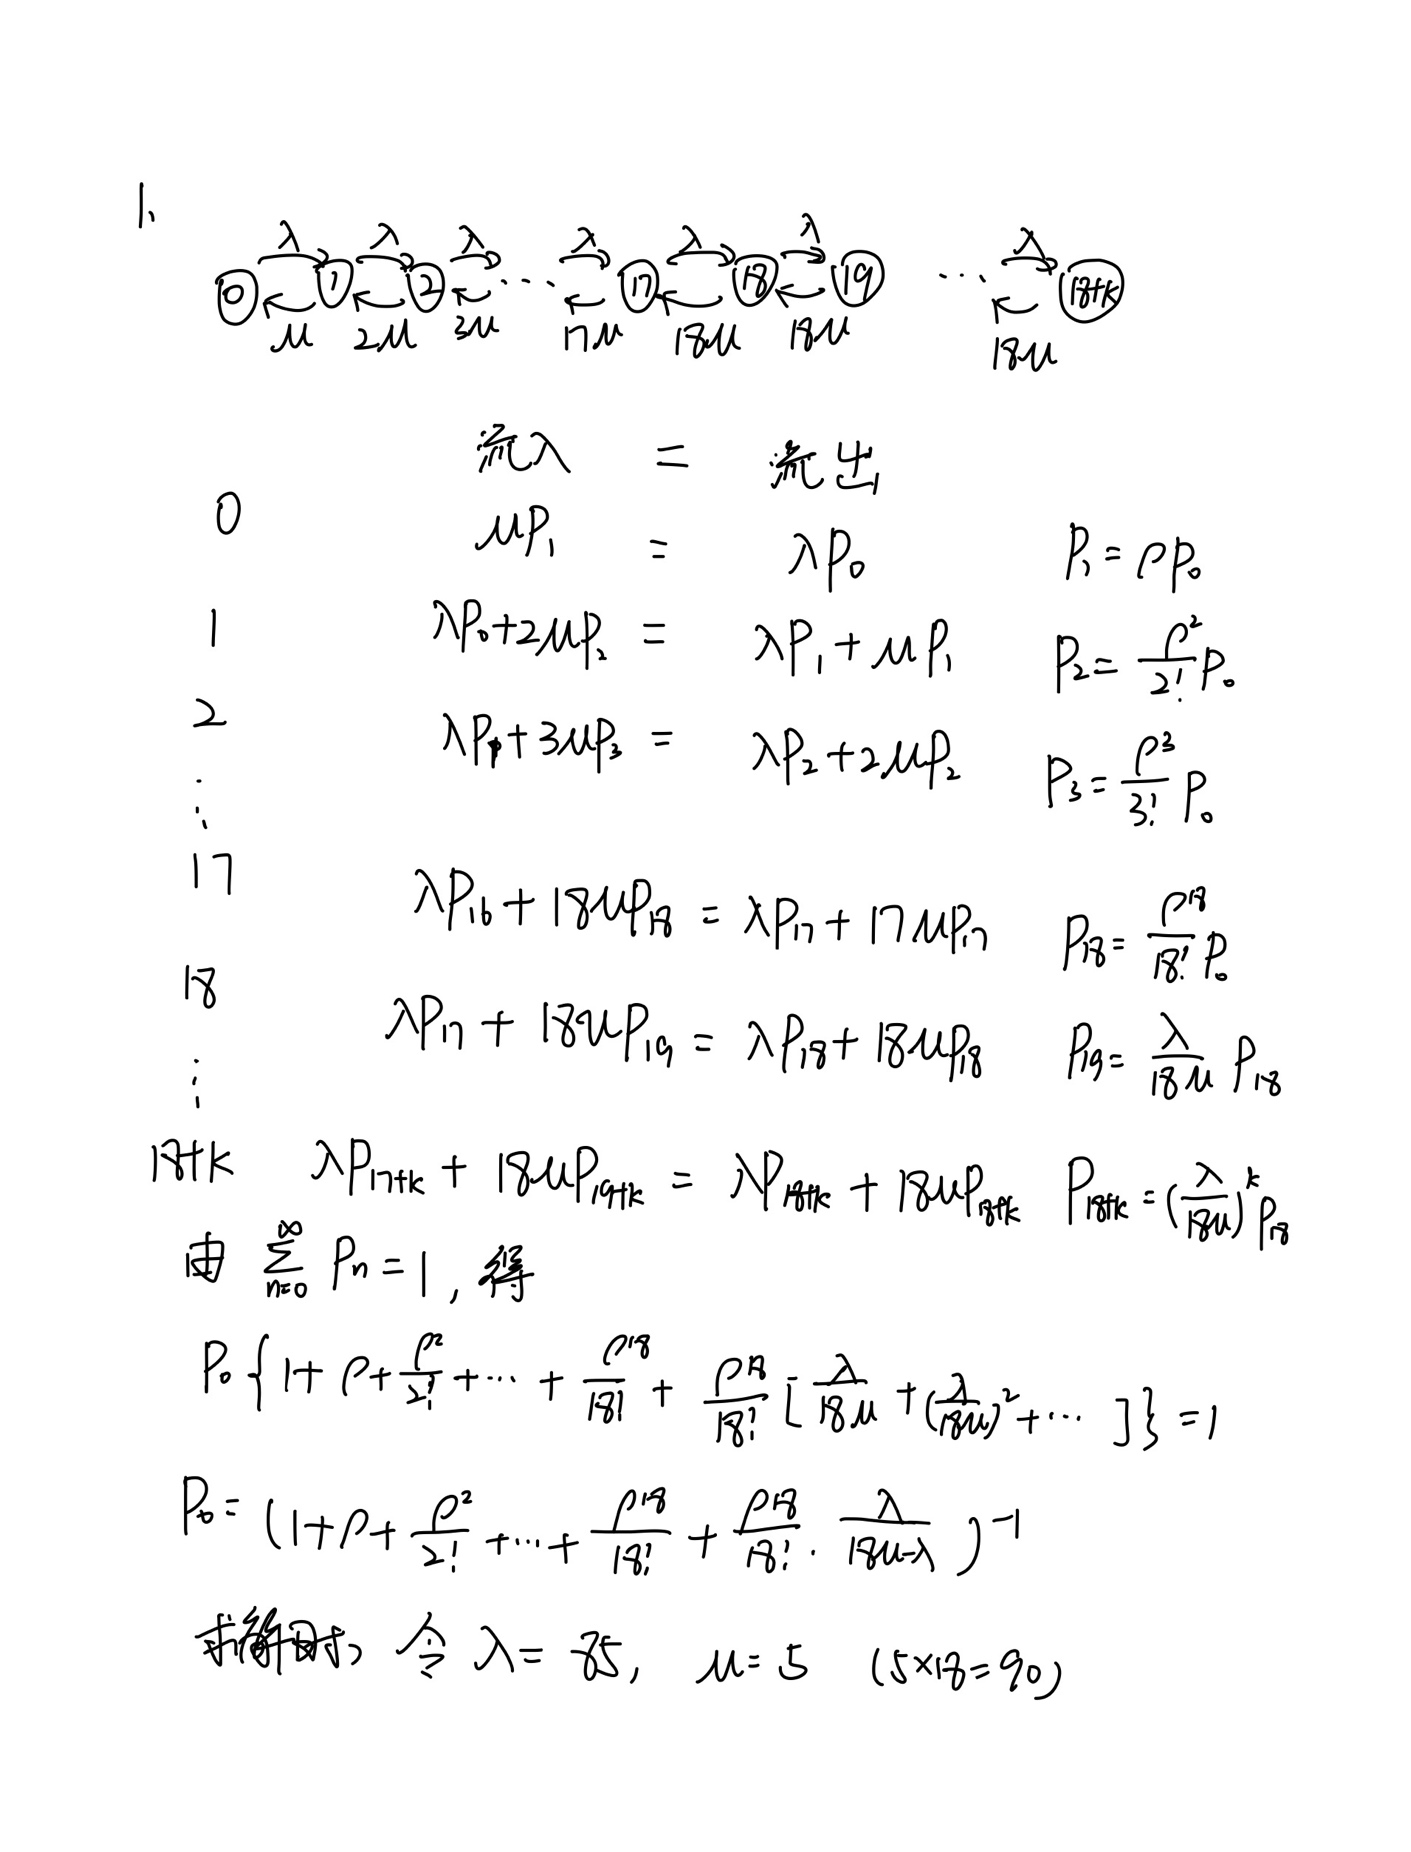 1.
λ λ λ λ λ λ λ
0 1 2 ... 17 18 19 ... 18+k
μ 2μ 3μ 17μ 18μ 18μ 18μ
流入 = 流出
0 μP₁ = λP₀ P₁ = ρP₀
1 λP₀+2μP₂ = λP₁+μP₁ P₂ = ρ²/2! P₀
2 λP₁+3μP₃ = λP₂+2μP₂ P₃ = ρ³/3! P₀
⋮
17 λP₁₆+18μP₁₈ = λP₁₇+17μP₁₇ P₁₈ = ρ¹⁸/18! P₀
18 λP₁₇+18μP₁₉ = λP₁₈+18μP₁₈ P₁₉ = λ/18μ P₁₈
⋮
18+k λP₁₇₊ₖ+18μP₁₉₊ₖ = λP₁₈₊ₖ+18μP₁₈₊ₖ P₁₈₊ₖ = (λ/18μ)ᵏ P₁₈
由 ∑_{n=0}^{∞} Pₙ = 1, 得
P₀{1+ρ+ρ²/2!+...+ρ¹⁸/18!+ρ¹⁸/18![λ/18μ+(λ/18μ)²+...]} = 1
P₀ = (1+ρ+ρ²/2!+...+ρ¹⁸/18!+ρ¹⁸/18!·λ/(18μ-λ))⁻¹
令 λ = 85, μ = 5 (5×18=90)